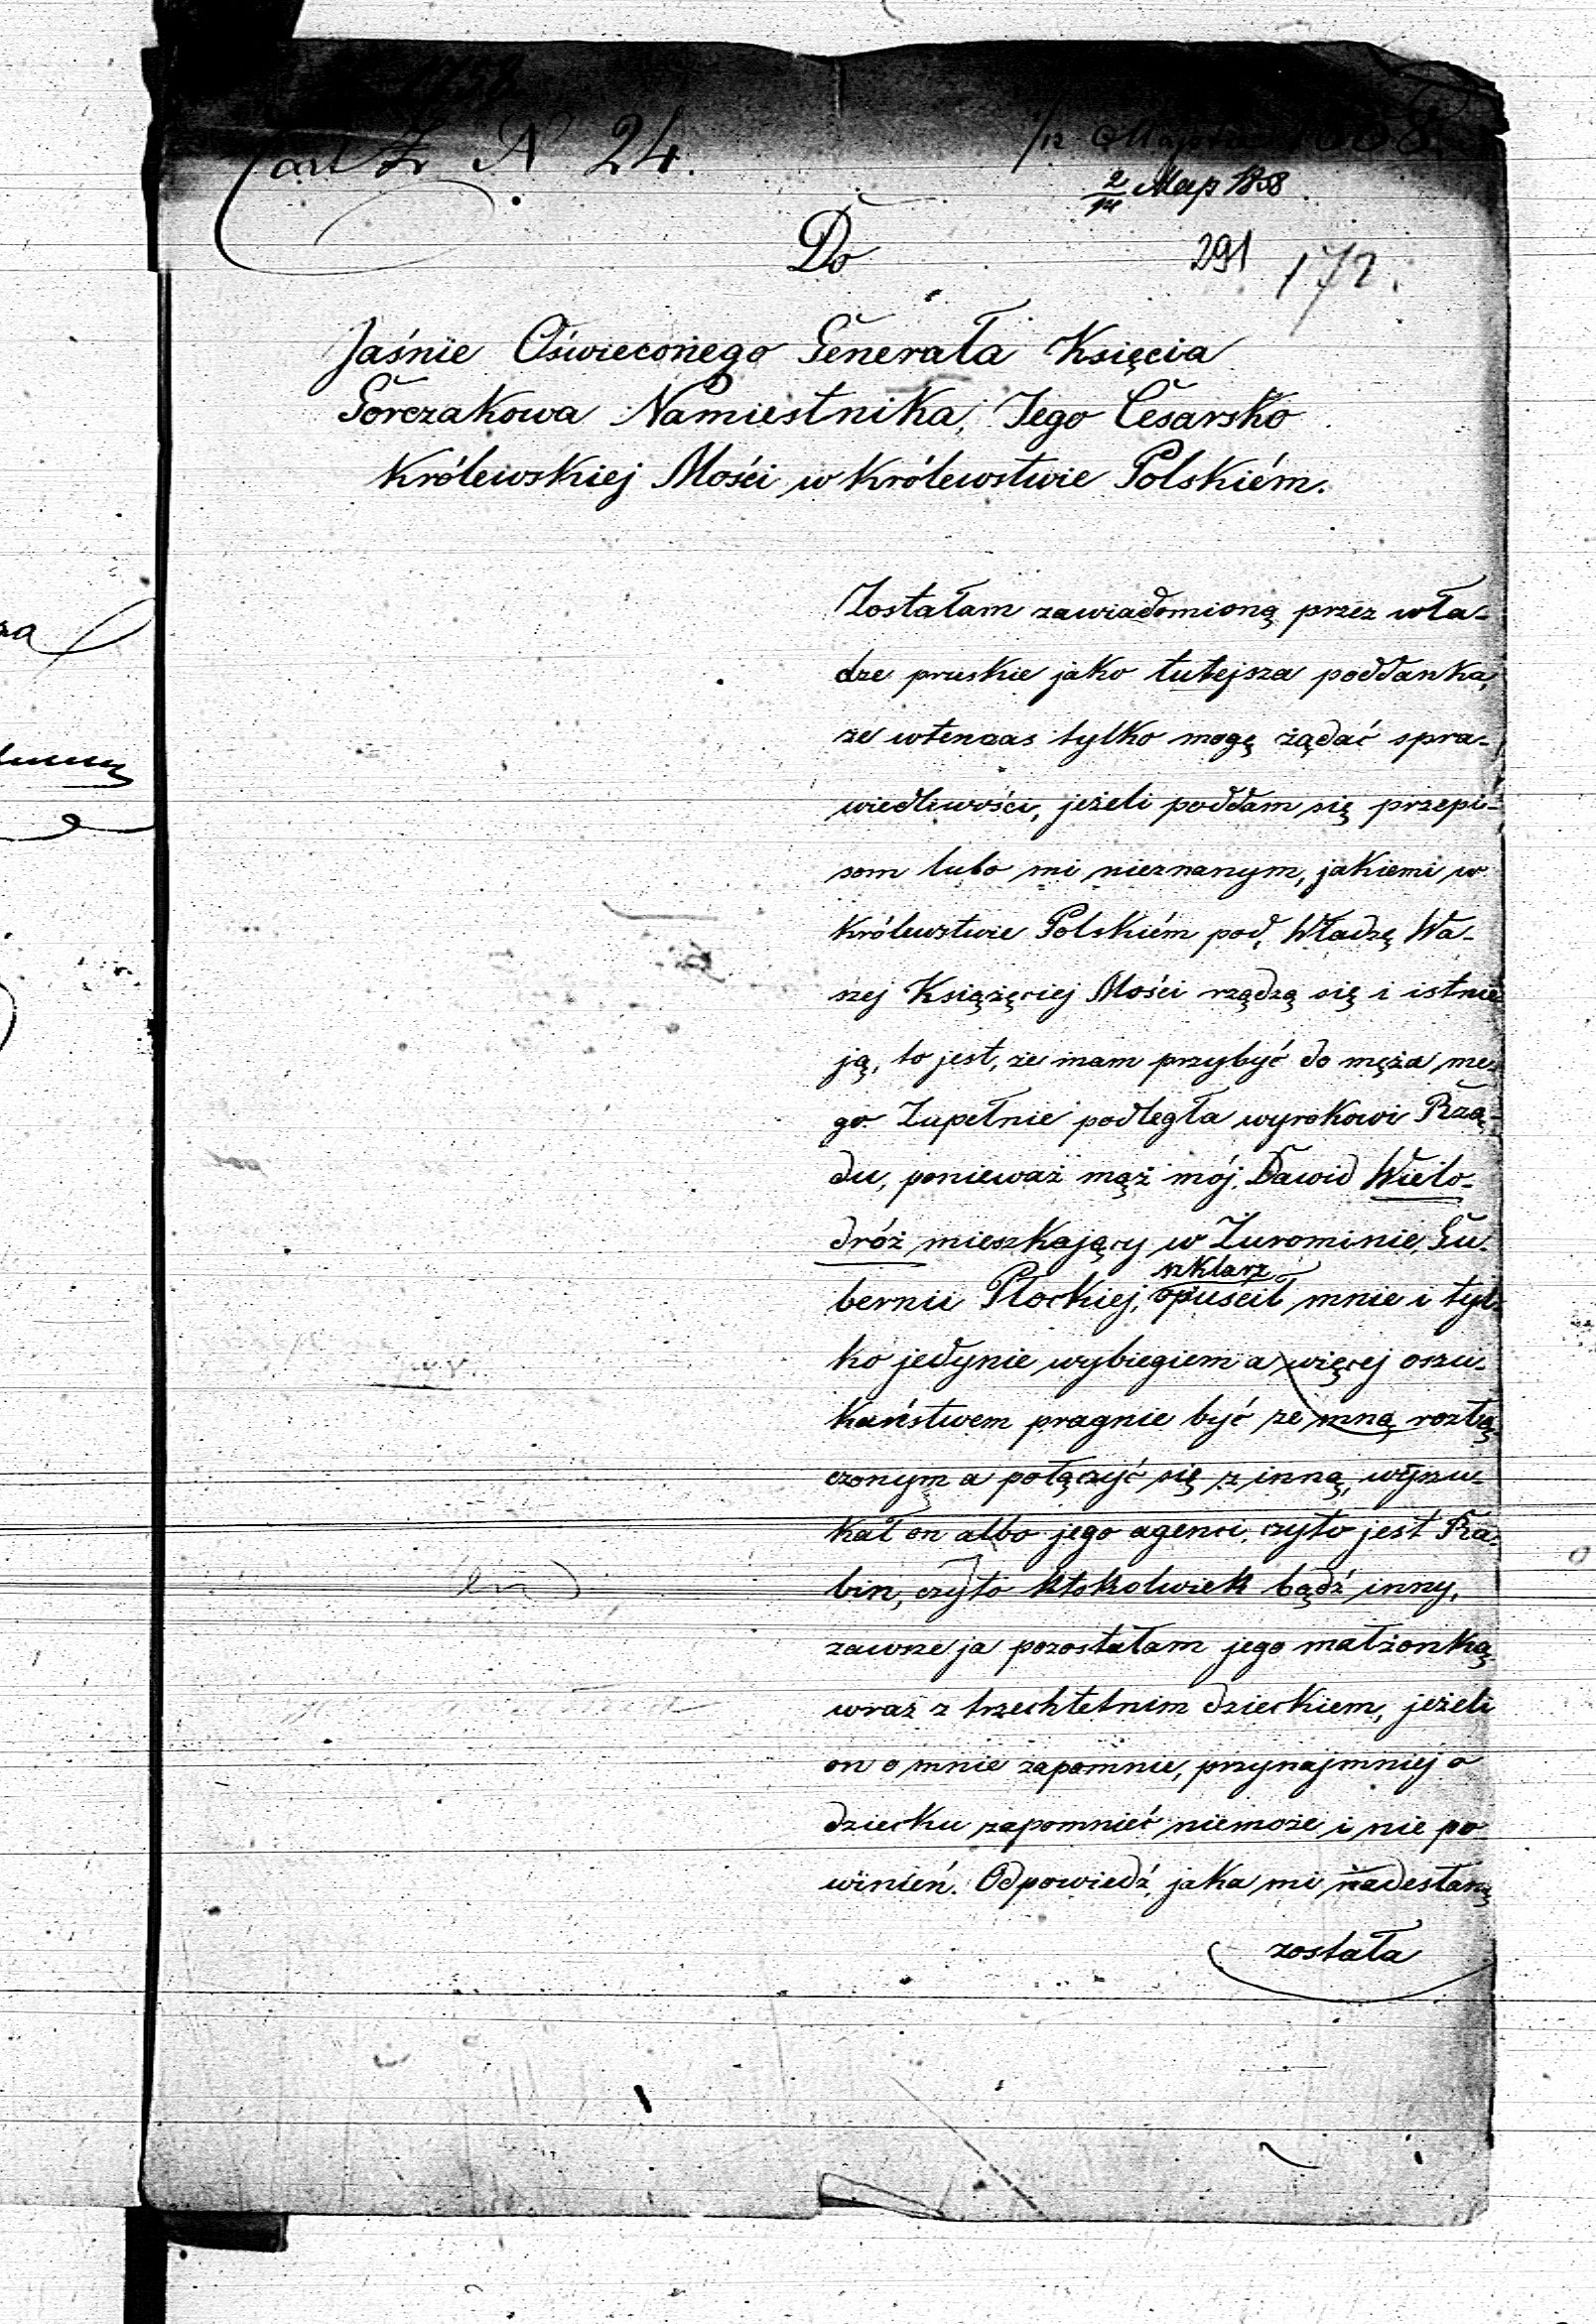 N 24.
1858
2/14 Мар 1858
Do
291 172.
Jaśnie Oświeconego Generała Księcia
Gorczakowa Namiestnika, Jego Cesarsko
Królewskiej Mości w Królewstwie Polskiém.
Zostałam zawiadomioną przez wła-
dze pruskie jako tutejsza poddanka,
że wtenczas tylko mogę żądać spra-
wiedliwości, jeżeli poddam się przepi-
som lubo mi nieznanym, jakiemi w
Królewstwie Polskiém pod, Władzę Wa-
szej Książęciej Mości rządzą się i istnie-
ją, to jest, że mam przybyć do męża me-
go. Zupełnie podległa wyrokowi Rzą-
du, ponieważ mąż mój, Dawid Wielo-
dróż mieszkający w Żurominie, Gu-
szklarz
bernii Płockiej, opuścił mnie i tyl-
ko jedynie wybiegiem a więcej oszu-
kaństwem pragnie być ze mną rozłą-
czonym a połączyć się z inną, wyszu-
kał on albo jego agenci, czyto jest Ra-
bin, czyto ktokolwiek bądź inny,
zawsze ja pozostałam jego małżonką
wraz z trzechletnim dzieckiem, jeżeli
on o mnie zapomnie, przynajmniej o
dziecku zapomnieć niemoże i nie po-
winień. Odpowiedź jaka mi nadesłaną
została